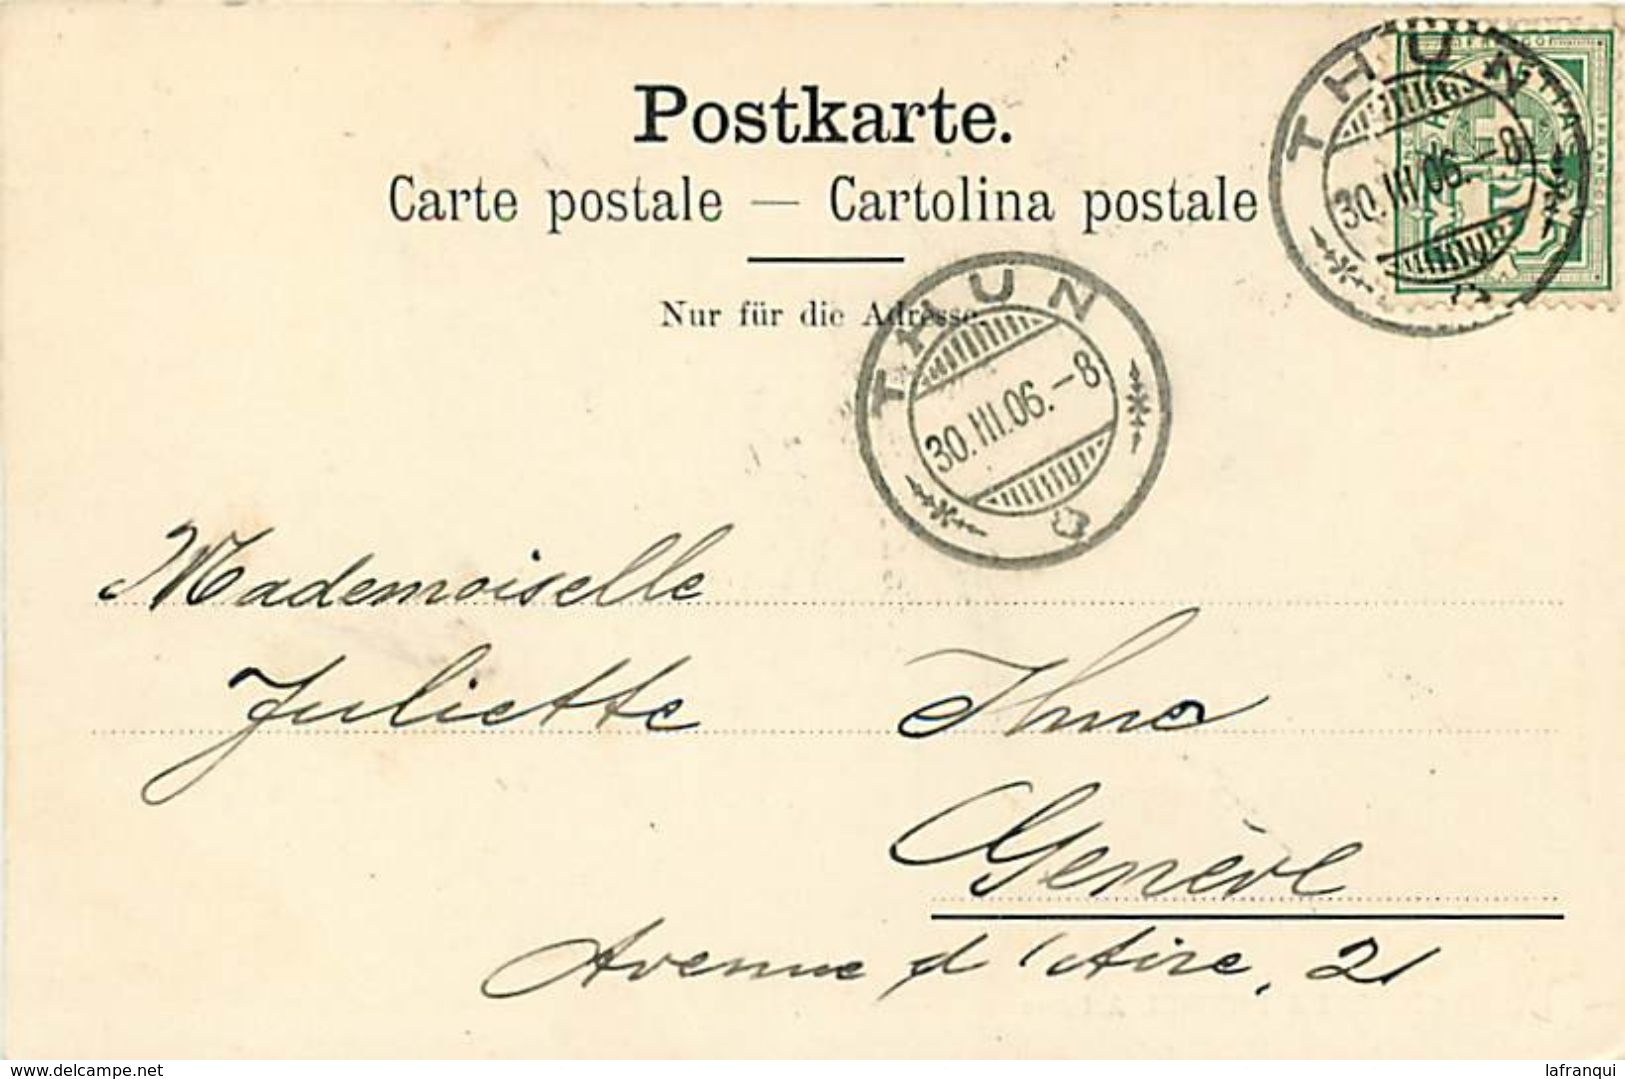 Postkarte.
Carte postale — Cartolina postale
Nur für die Adresse.
THUN
30.III.06.-8
THUN
30.III.06.-8
Mademoiselle
Juliette
Genève
Avenue d'Aïre, 21
delcampe.net
lafranqui